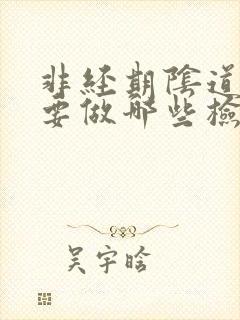 非经期阴道
要做那些检
吴宇晗